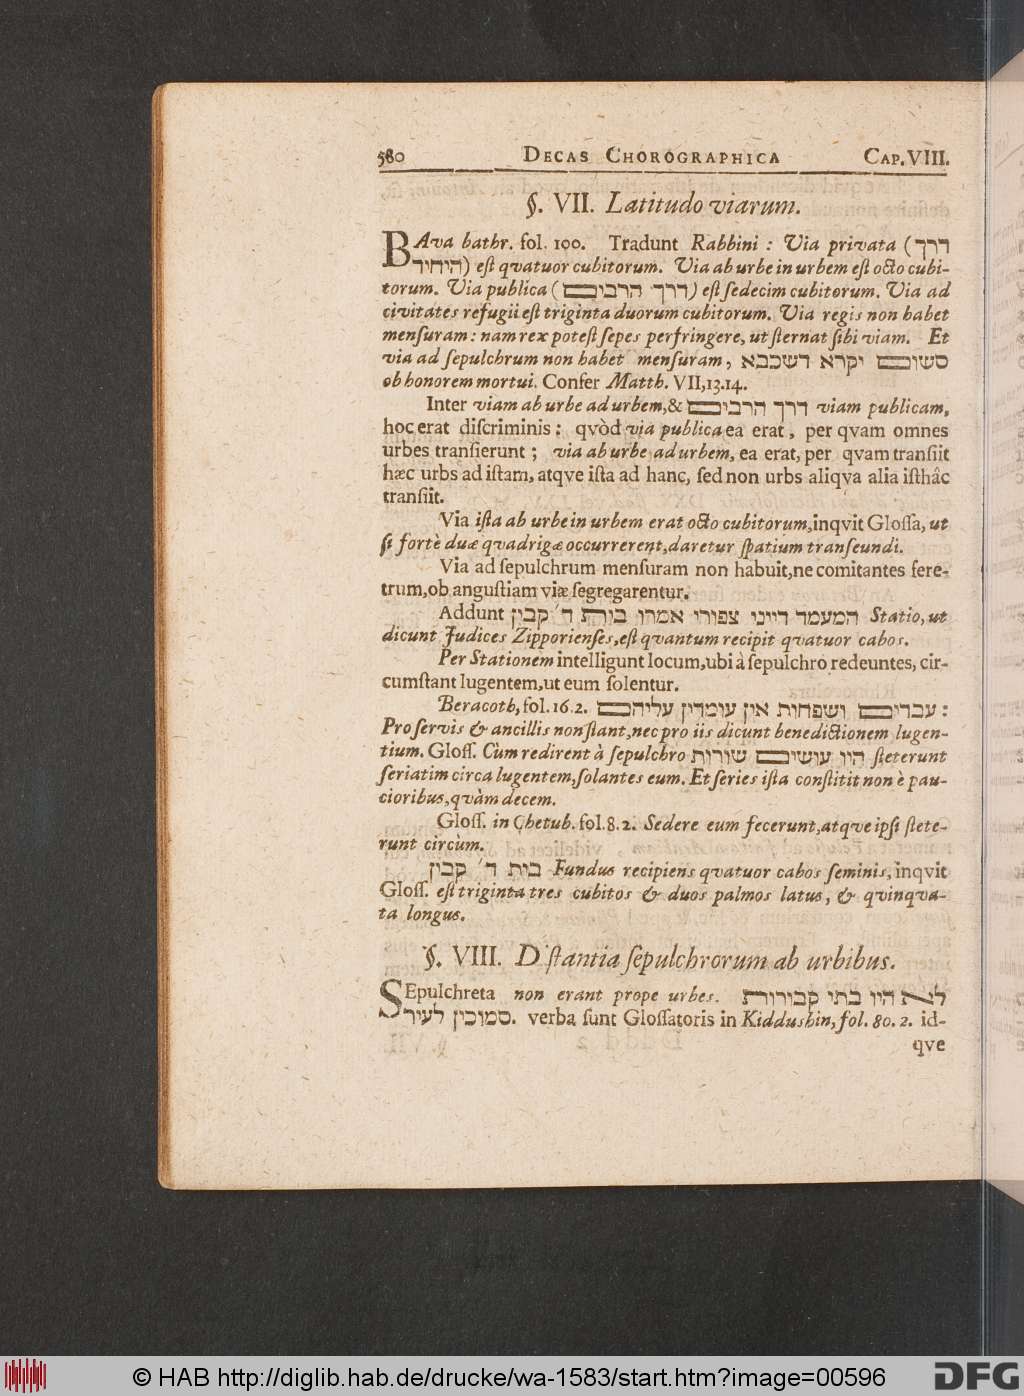 580 DECAS CHOROGRAPHICA CAP. VIII.
§. VII. Latitudo viarum.
BAva bathr. fol. 100. Tradunt Rabbini : Via privata (דרך
היחיד) est qvatuor cubitorum. Via ab urbe in urbem est octo cubi-
torum. Via publica (דרך הרבים) est sedecim cubitorum. Via ad
civitates refugii est triginta duorum cubitorum. Via regis non habet
mensuram : nam rex potest sepes perfringere, ut sternat sibi viam. Et
via ad sepulchrum non habet mensuram, סשום יקרא דשכבא
ob honorem mortui. Confer Matth. VII, 13.14.
Inter viam ab urbe ad urbem, & דרך הרבים viam publicam,
hoc erat discriminis : qvòd via publica ea erat, per qvam omnes
urbes transierunt ; via ab urbe ad urbem, ea erat, per qvam transiit
hæc urbs ad istam, atqve ista ad hanc, sed non urbs aliqva alia isthâc
transiit.
Via ista ab urbe in urbem erat octo cubitorum, inqvit Glossa, ut
si fortè duæ qvadrigæ occurrerent, daretur spatium transeundi.
Via ad sepulchrum mensuram non habuit, ne comitantes fere-
trum, ob angustiam viæ segregarentur.
Addunt המעמד דייני צפורי אמרו בית ד׳ קבין Statio, ut
dicunt Judices Zipporienses, est qvantum recipit qvatuor cabos.
Per Stationem intelligunt locum, ubi à sepulchro redeuntes, cir-
cumstant lugentem, ut eum solentur.
Beracoth, fol. 16. 2. עבדים ושפחות אין עומדין עליהם :
Pro servis & ancillis non stant, nec pro iis dicunt benedictionem lugen-
tium. Gloss. Cùm redirent à sepulchro היו עושים שורות steterunt
seriatim circa lugentem, solantes eum. Et series ista constitit non è pau-
cioribus, qvàm decem.
Gloss. in Chetub. fol. 8. 2. Sedere eum fecerunt, atqve ipsi stete-
runt circùm.
בית ד׳ קבין Fundus recipiens qvatuor cabos seminis, inqvit
Gloss. est triginta tres cubitos & duos palmos latus, & qvinqva-
ta longus.
§. VIII. Distantia sepulchrorum ab urbibus.
SEpulchreta non erant prope urbes. לא היו בתי קבורות
סמוכין לעיר. verba sunt Glossatoris in Kiddushin, fol. 80. 2. id-
qve
© HAB http://diglib.hab.de/drucke/wa-1583/start.htm?image=00596
DFG